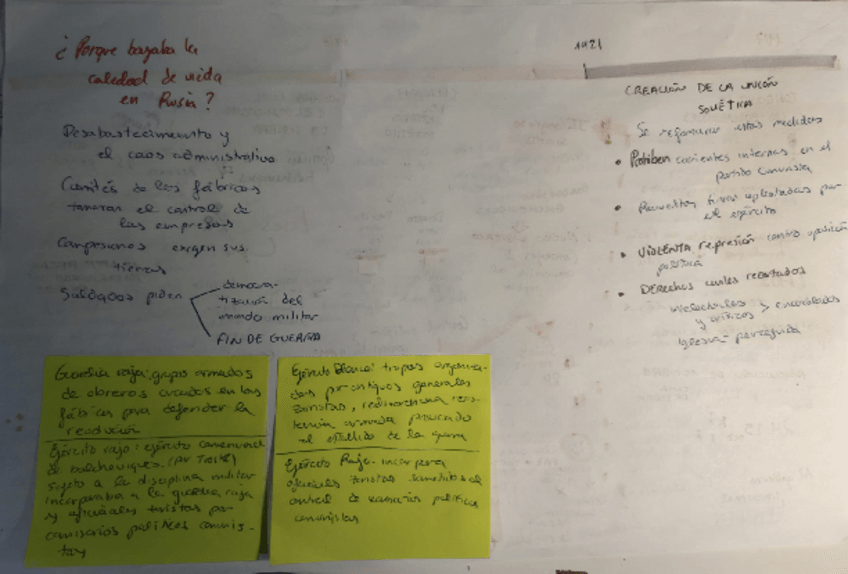 ¿Porque bajaba la
calidad de vida
en Rusia?
Desabastecimiento y
el caos administrativo
Comités de las fábricas
tomaron el control de
las empresas
Campesinos exigen sus
tierras
Soldados piden
democra-
tización del
mundo militar
FIN DE GUERRA
Guardia roja: grupos armados
de obreros creados en las
fábricas para defender la
revolución
Ejército rojo: ejército
de bolcheviques. (por Trotski)
sujeto a la disciplina militar
incorporaba a la guardia roja
y oficiales zaristas por
comisarios políticos comunis-
tas
Ejército Blanco: tropas organiza-
das por antiguos generales
zaristas, resis-
tencia armada provocando
el estallido de la guerra
Ejército Rojo. incorpora
oficiales zaristas sometidos al
control de comisarios políticos
comunistas
1921
CREACIÓN DE LA UNIÓN
SOVIÉTICA
Se reforzaron estas medidas
• Prohiben corrientes internas en el
partido comunista
• Revueltas fueron aplastadas por
el ejército
• VIOLENTA represión contra oposición
política
• DErechos civiles recortados
intelectuales
y críticos > encarcelados
iglesia - perseguida